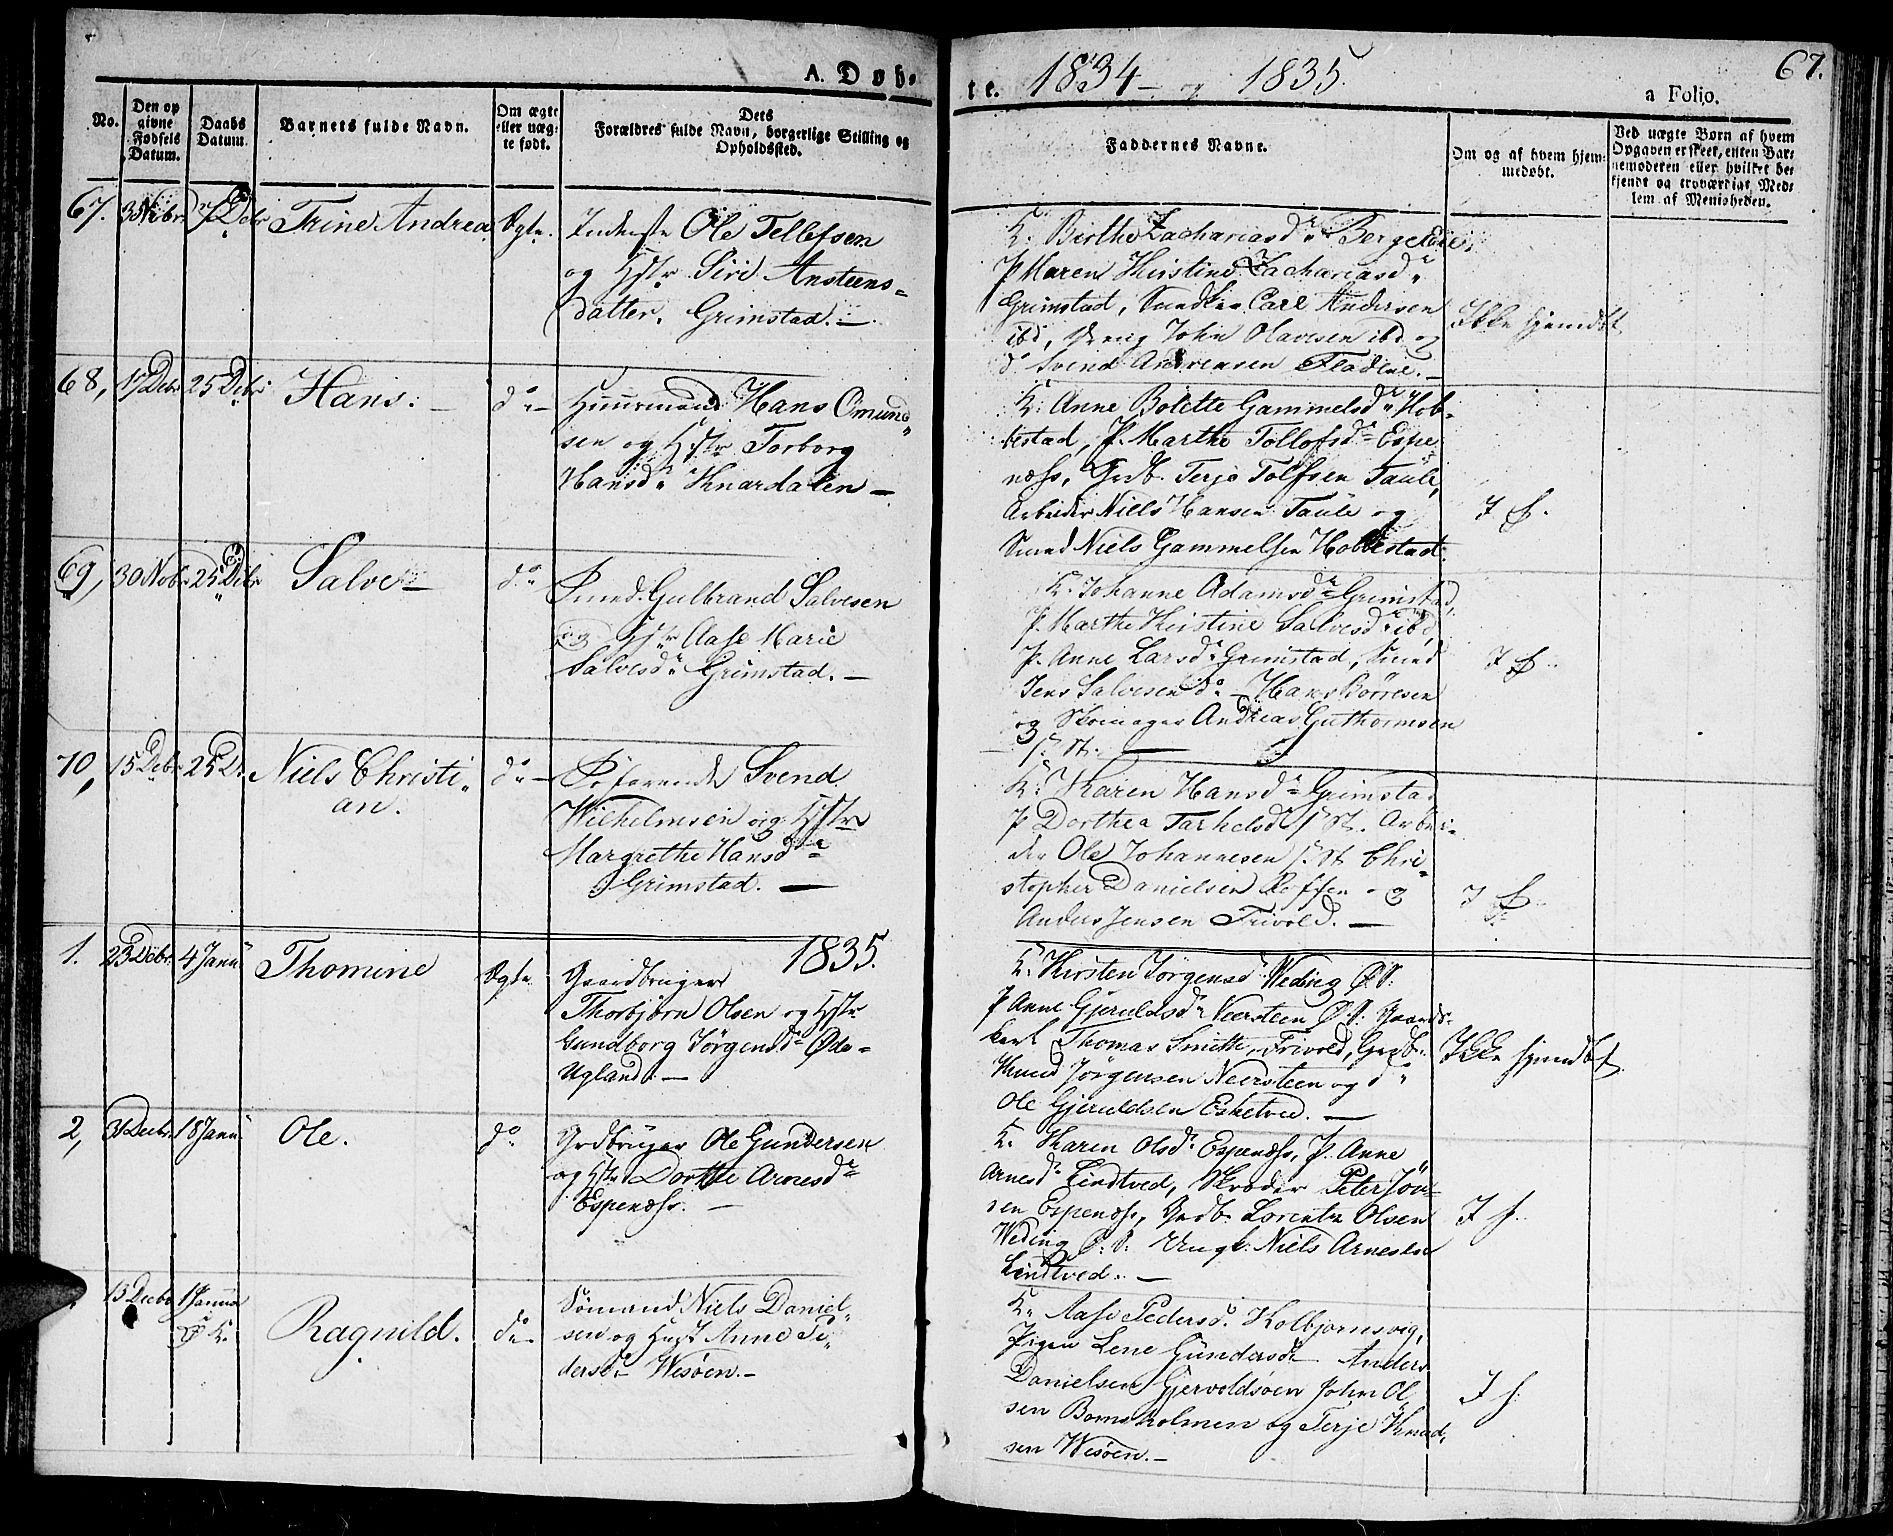 A. Døb-
te. 1834 – og 1835.
67.
a Folio.
No.
Den op
givne
Fødsels
Datum.
Daabs
Datum.
Barnets fulde Navn.
Om ægte
eller uæg-
te født.
Dets
Forældres fulde Navn, borgerlige Stilling og
Opholdssted.
Faddernes Navne.
Om og af hvem hjem-
medøbt.
Ved uægte Børn af hvem
Opgaven er skeet, enten Bar-
nemoderen eller hvilket be-
kjendt og troværdigt Med-
lem af Menigheden.
67. 7 Debr Trine Andrea Ægte.
Inderste Ole Tellefsen
og Hstr Siri Ansteens=
datter. Grimstad. –
K: Birthe Zachariasdr
P Maren Kirstine Zachariasdr
Grimstad, Carl Andersen
ibd, John Olavesen ibd og
do Svend Andreasen
Ikke hjemdbt
68, 17 Debr 25 Debr Hans. – do –
Huusmand Hans Omund
sen og Hstr Torborg
Hansdr Knardalen –
K: Anne Bolette Gammelsdr Hob-
bestad, P. Marthe Tollofsdr Espe
næss, Grdb. Terje Tolfsen Taule,
Arbeider Niels Hansen Taule og
Smed Niels Gammelsen Hobbestad
69, 30 Nobr 25 Debr Salve – do
Smed Gulbrand Salvesen
og Hstr Aase Marie
Salvesdr Grimstad. –
K. Johanne Adamsdr Grimstad,
P. Marthe Kirstine Salvesdr ibd,
P. Anne Larsdr Grimstad, Smed
Jens Salvesen do – Hans Børresen
og Skomager Andreas Guthormsen
s. St. –
70, 15 Debr 25 D. Niels Christi- do –
an.
Søfarende Svend
Wilhelmsen og Hstr
Margrethe Hansdr
Grimstad. –
K: Karen Hansdr Grimstad
P Dorthea Tarkelsd s St. Arbei-
der Ole Johannesen s. St Chri-
stopher Danielsen og
Anders Jensen Frivold. –
1835.
1. 23 Debr. 4 Janu. Thomine Ægte
Gaardbruger
Thorbjørn Olsen og Hstr
Gundborg Jørgensdr Øde-
Ugland. –
K. Kirsten Jørgensdr Weding Ø. S:
P Anne Gjeruldsdr Neersteen Ø. S. Gaards-
karl Thomas Smith, Frivold, Grdb.
Knud Jørgensen Neersteen og do
Ole Gjeruldsen Esketved. –
Ikke hjemdbt
2, 31 Decbr. 18 Janu Ole. do
Grdbruger Ole Gundersen
og Hstr Dorthe Arnesdr
Espenæss. –
K. Karen Olsdr Espenæss, P. Anne
Arnesdr Lindtved, Skræder Peter Jön-
sen Espenæss, Grdb. Lorentz Olsen
Weding Ø: S: Ungk: Niels Arnesen
Lindtved. –
13 Decbr 1 Janua
Ø K. Ragnild. do –
Sømand Niels Daniel-
sen og Hust Anne Pe-
dersdr Wesøen. –
K. Aase Pedersd. Kolbjørnsvig,
Pigen Lene Gundersdr Anders
Danielsen Gjervoldsøen John Ol
sen Bomsholmen og Terje Knud,
sen Wesøen. –